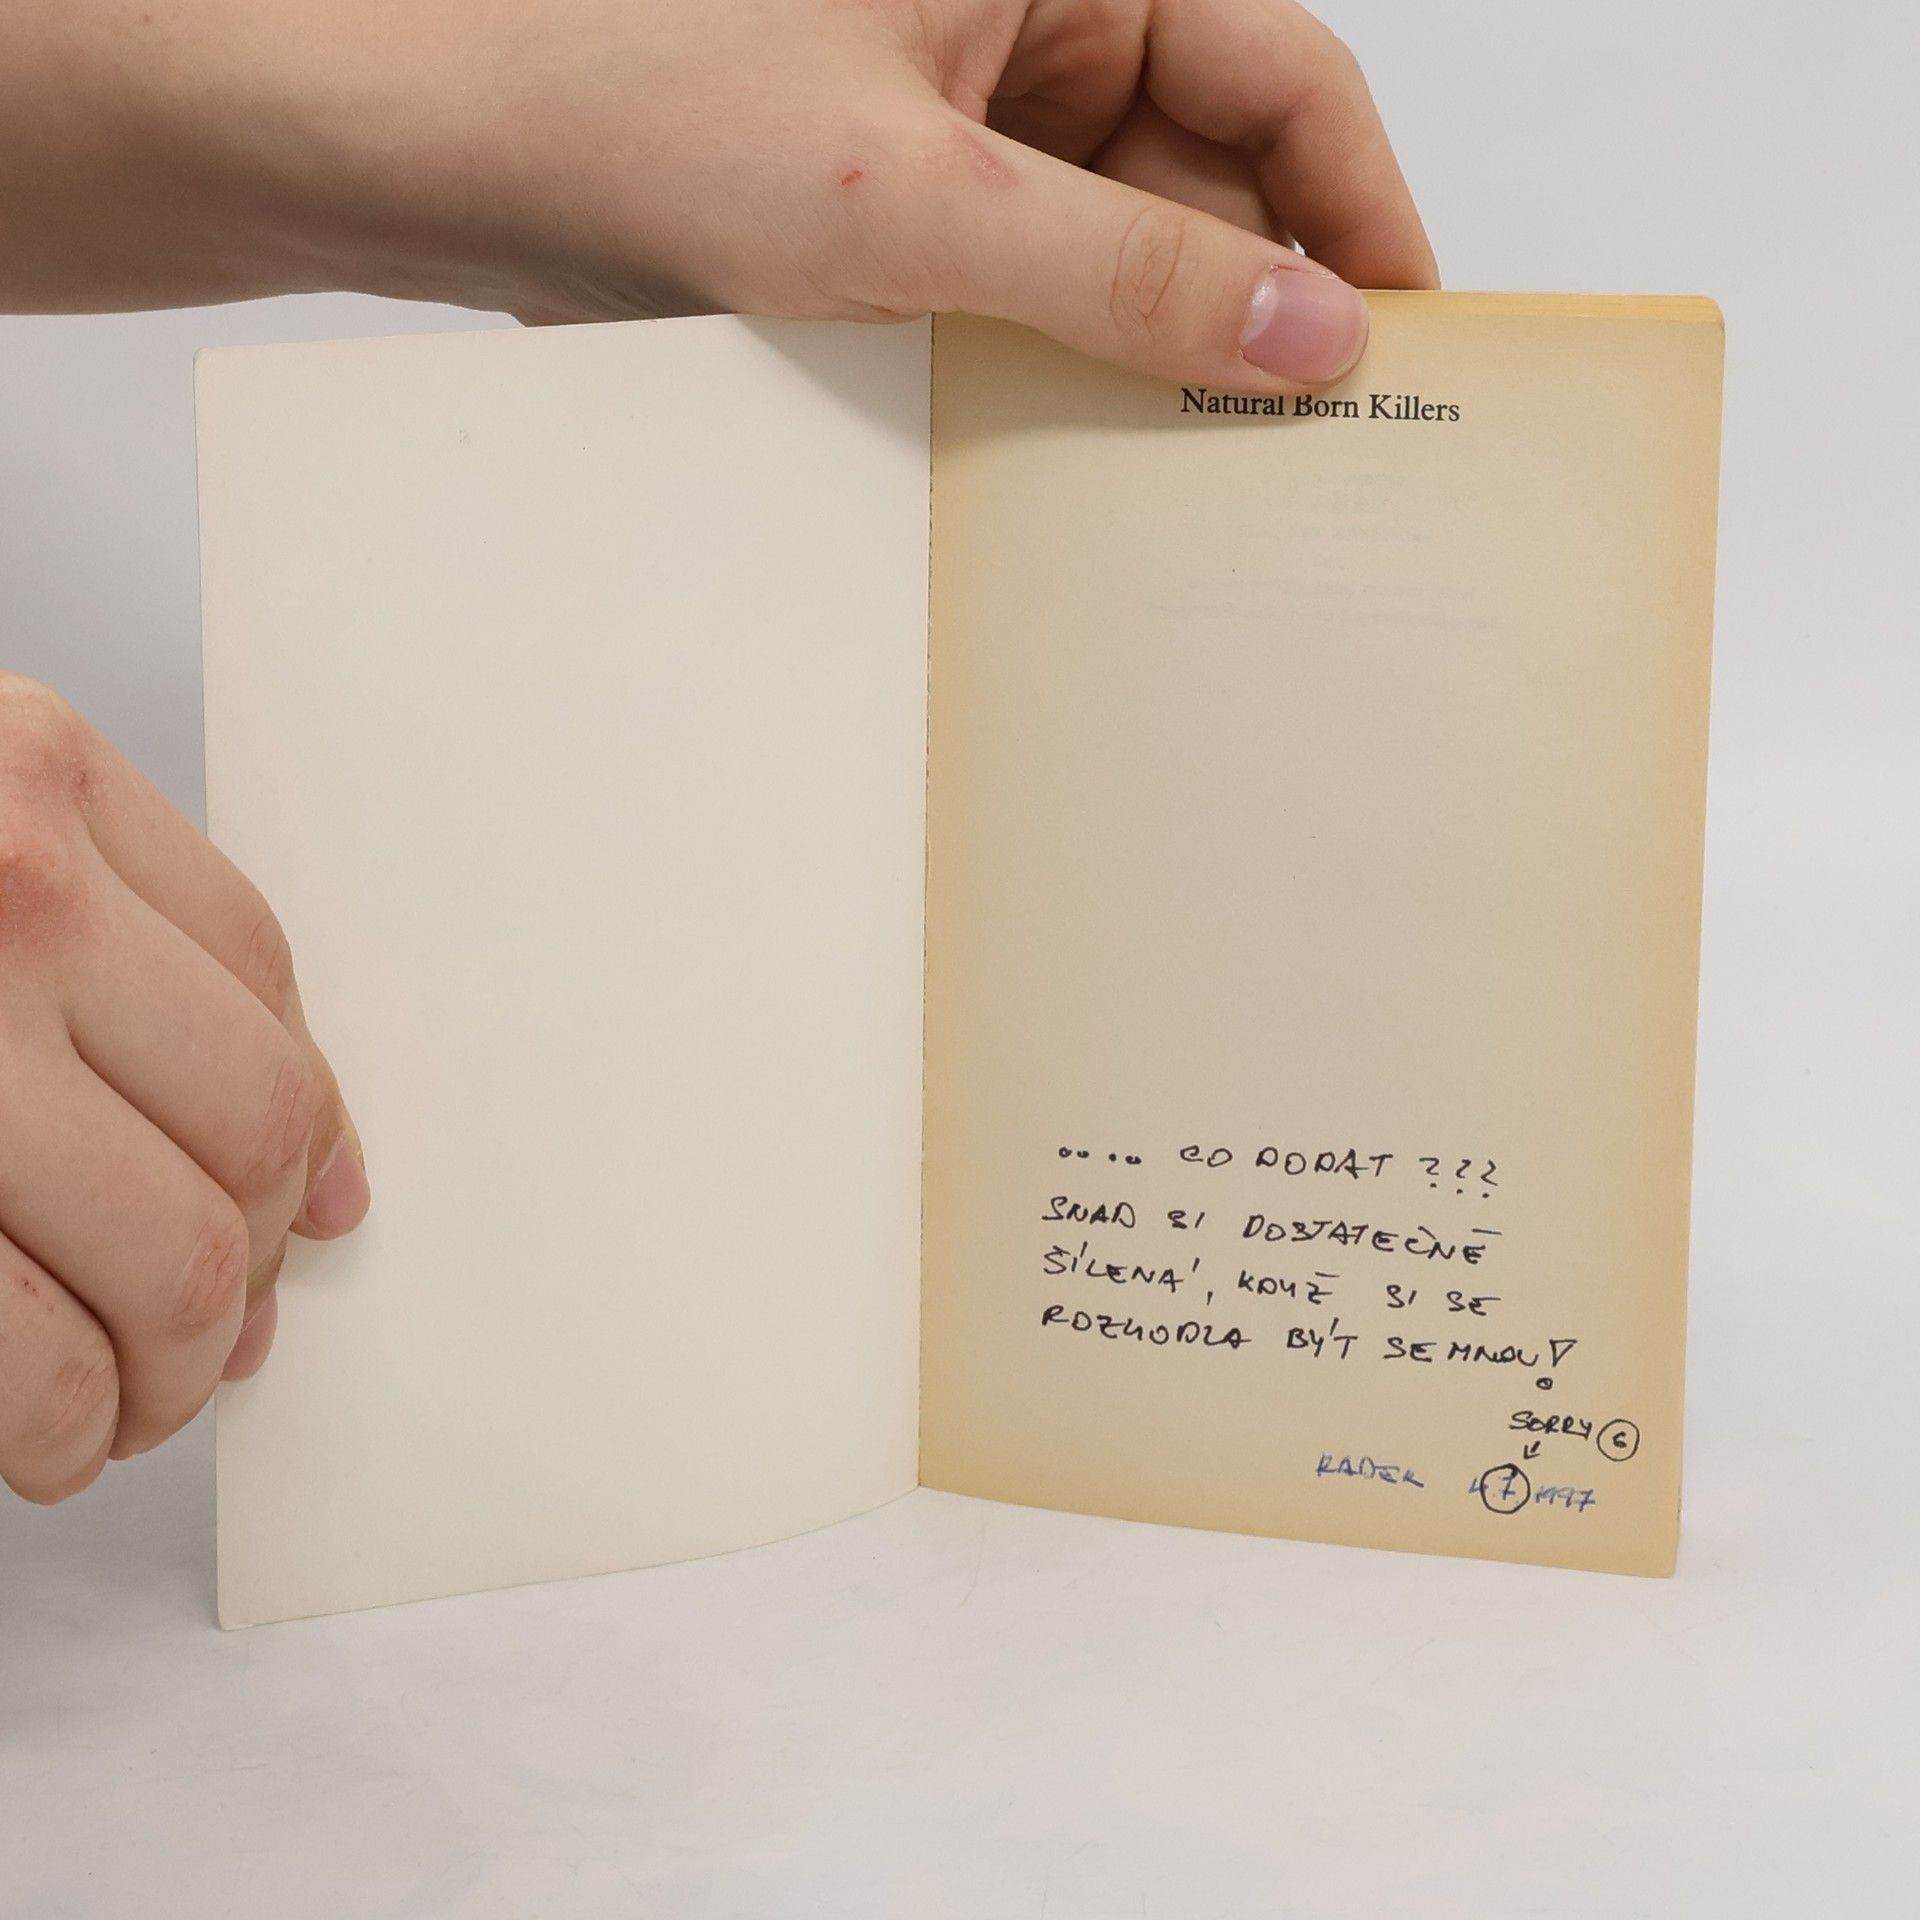 Natural Born Killers
.... CO DODAT ???
SNAD SI DOSTATEČNĚ
ŠÍLENÁ, KDYŽ SI SE
ROZHODLA BÝT SE MNOU!
SORRY 6
RADEK 4.7 1997